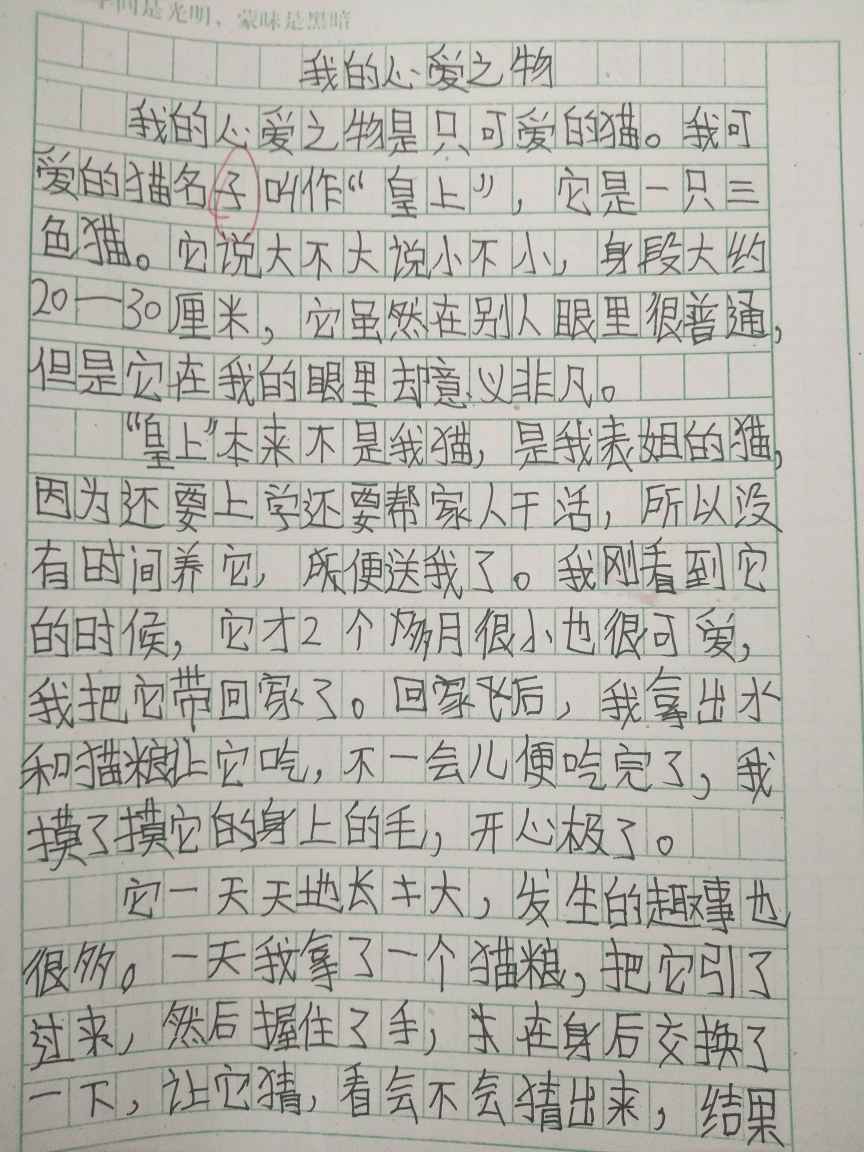 学问是光明，蒙昧是黑暗
我的心爱之物
我的心爱之物是只可爱的猫。我可
爱的猫名子叫作“皇上”，它是一只三
色猫。它说大不大说小不小，身段大约
20一30厘米，它虽然在别人眼里很普通，
但是它在我的眼里却意义非凡。
“皇上”本来不是我猫，是我表姐的猫，
因为还要上学还要帮家人干活，所以没
有时间养它，所便送我了。我刚看到它
的时候，它才2个多月很小也很可爱，
我把它带回家了。回家后，我拿出水
和猫粮让它吃，不一会儿便吃完了，我
摸了摸它的身上的毛，开心极了。
它一天天地长大，发生的趣事也
很多。一天我拿了一个猫粮，把它引了
过来，然后握住了手，在身后交换了
一下，让它猜，看会不会猜出来，结果